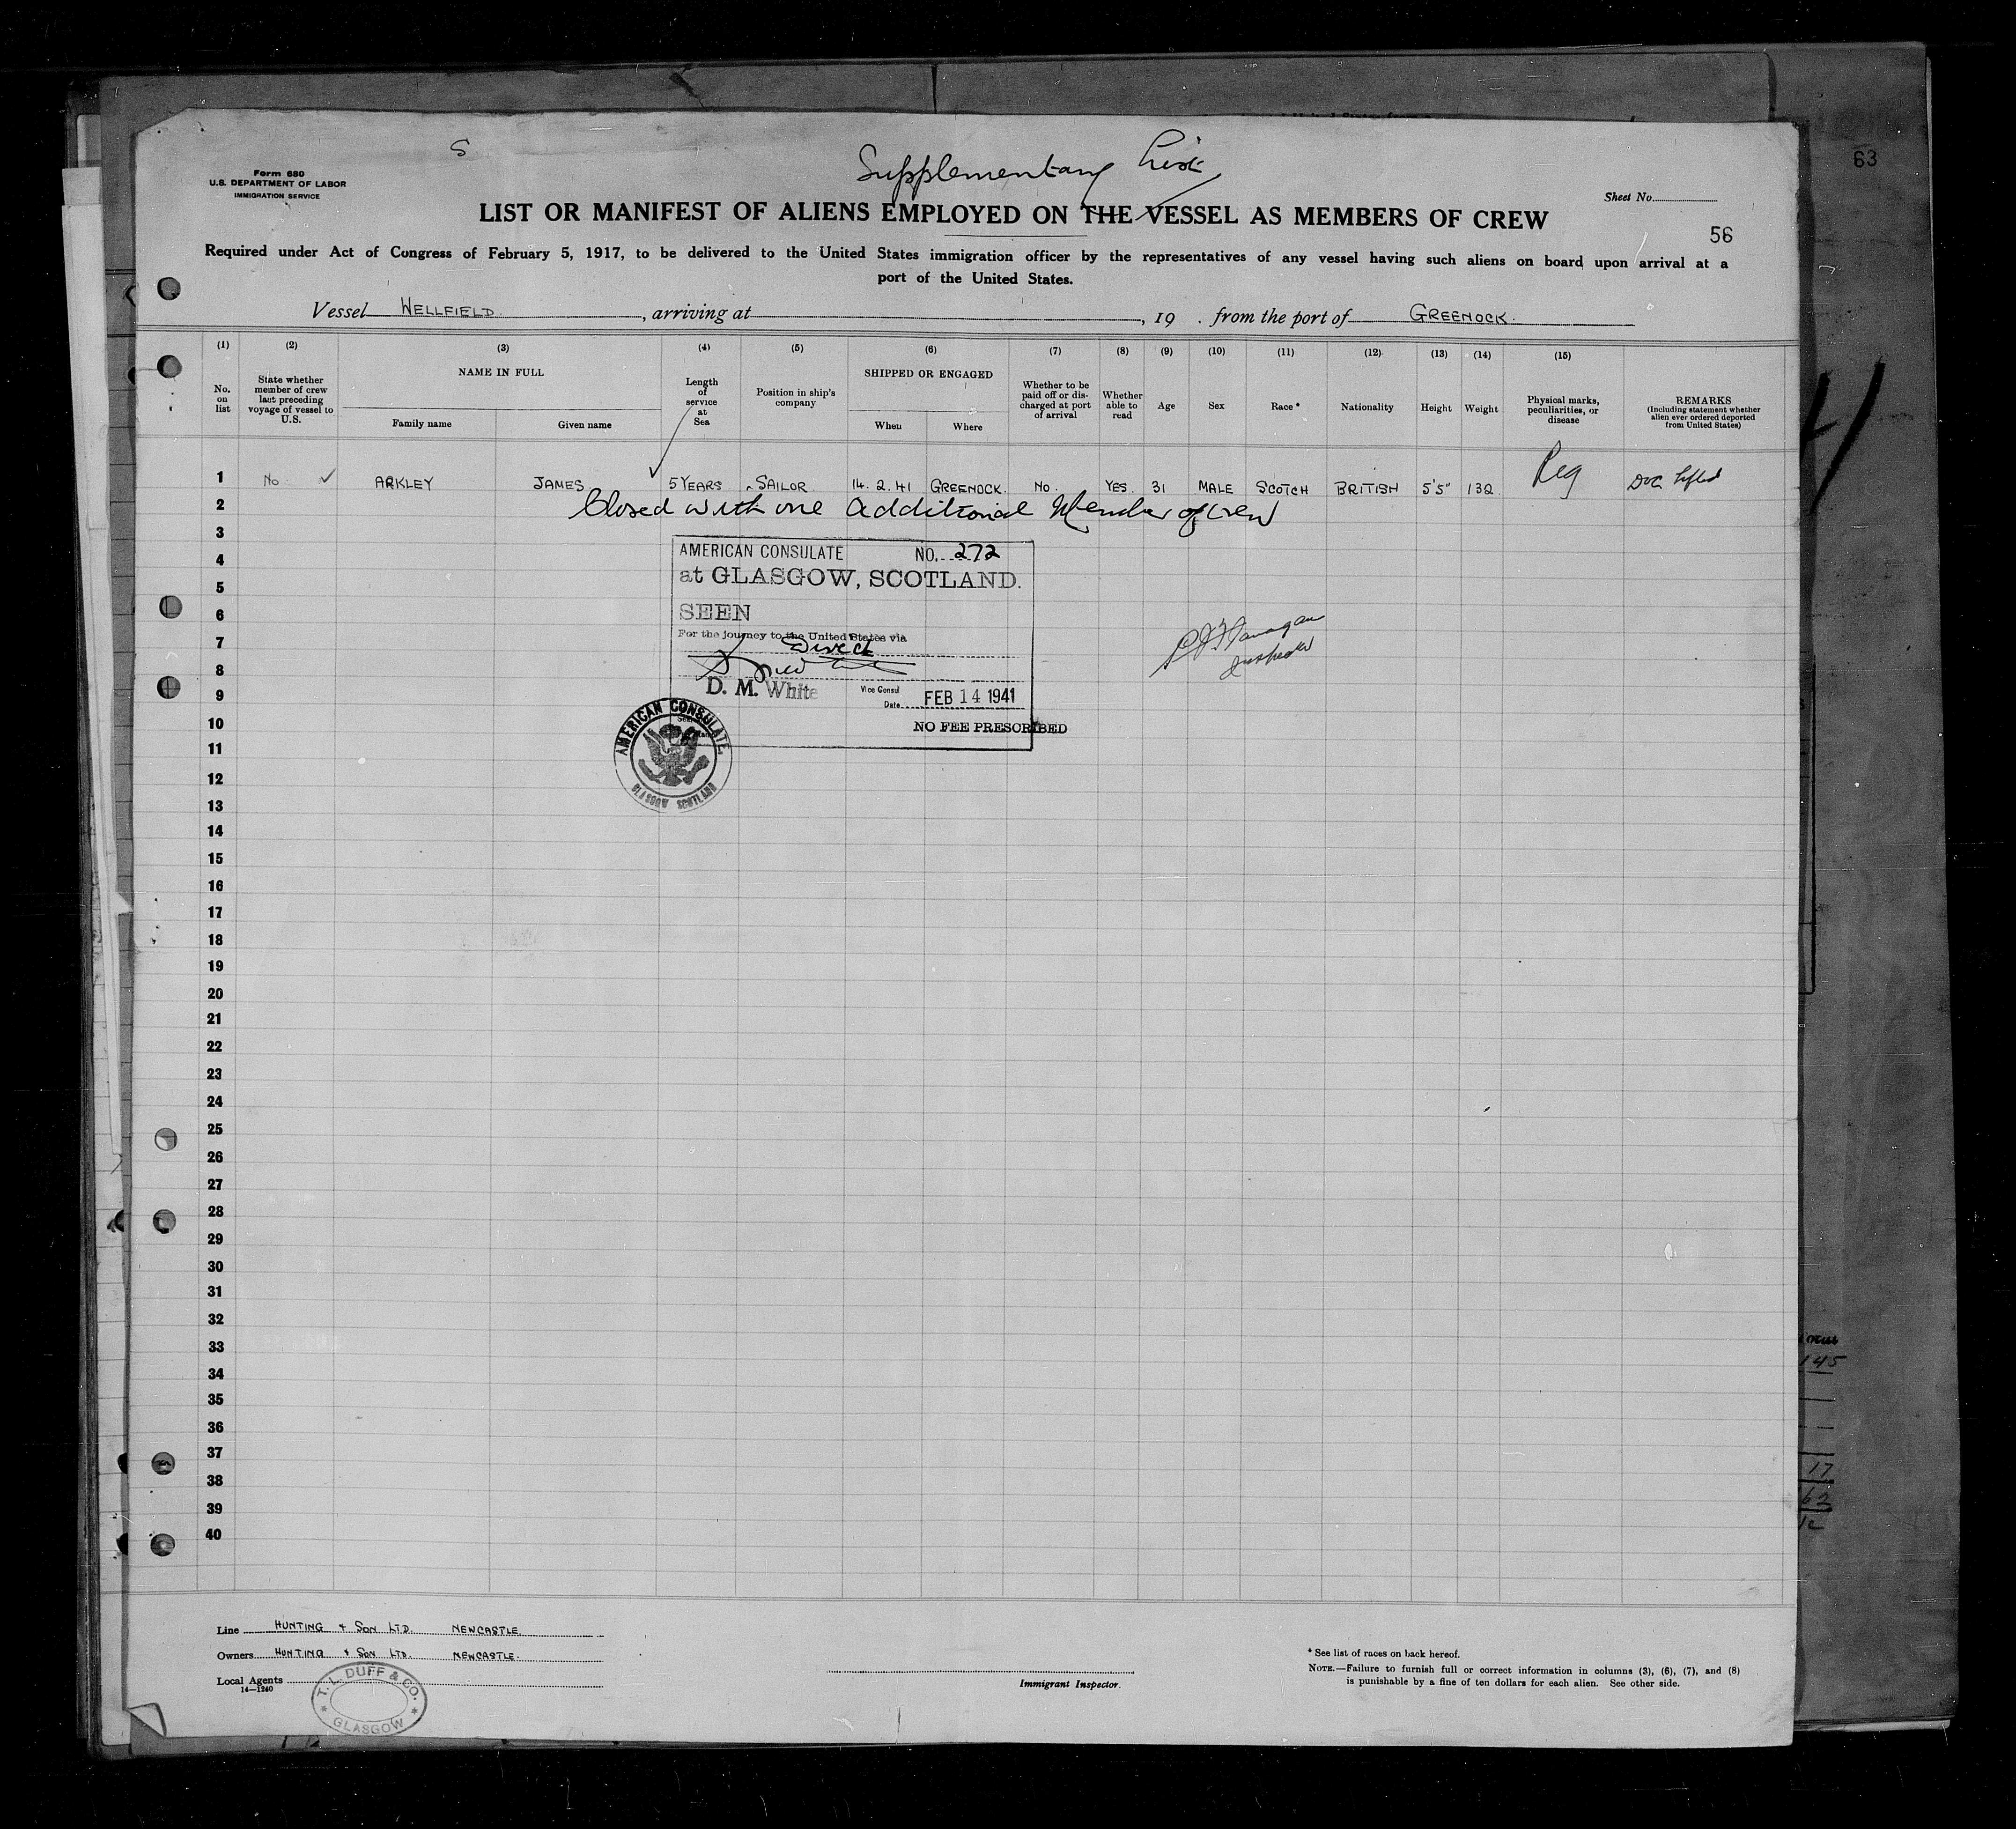 63
S
Supplementary List
Form 680
U.S. DEPARTMENT OF LABOR
IMMIGRATION SERVICE
Sheet No.
LIST OR MANIFEST OF ALIENS EMPLOYED ON THE VESSEL AS MEMBERS OF CREW
56
Required under Act of Congress of February 5, 1917, to be delivered to the United States immigration officer by the representatives of any vessel having such aliens on board upon arrival at a
port of the United States.
Vessel WELLFIELD, arriving at , 19 . from the port of GREENOCK.
(1) (2) (3) (4) (5) (6) (7) (8) (9) (10) (11) (12) (13) (14) (15)
No. on list
State whether member of crew last preceding voyage of vessel to U.S.
NAME IN FULL
Family name
Given name
Length of service at Sea
Position in ship's company
SHIPPED OR ENGAGED
When
Where
Whether to be paid off or discharged at port of arrival
Whether able to read
Age
Sex
Race *
Nationality
Height
Weight
Physical marks, peculiarities, or disease
REMARKS
(Including statement whether alien ever ordered deported from United States)
1 No ✓ ARKLEY JAMES 5 YEARS SAILOR 14. 2. 41 GREENOCK. No. YES. 31 MALE SCOTCH BRITISH 5'5" 132 Reg Doc lifted
2 Closed with one additional Member of Crew
3
4
5
6
7
8
9
10
11
12
13
14
15
16
17
18
19
20
21
22
23
24
25
26
27
28
29
30
31
32
33
34
35
36
37
38
39
40
AMERICAN CONSULATE NO. 272
at GLASGOW, SCOTLAND.
SEEN
For the journey to the United States via
Direct
D. M. White
Vice Consul
Date FEB 14 1941
NO FEE PRESCRIBED
AMERICAN CONSULATE.
GLASGOW SCOTLAND
Inspector
145
17
63
Line HUNTING & SON LTD. NEWCASTLE.
Owners HUNTING & SON LTD. NEWCASTLE.
Local Agents
14—1240
T. L. DUFF & CO.
* GLASGOW *
Immigrant Inspector.
* See list of races on back hereof.
NOTE.—Failure to furnish full or correct information in columns (3), (6), (7), and (8)
is punishable by a fine of ten dollars for each alien. See other side.